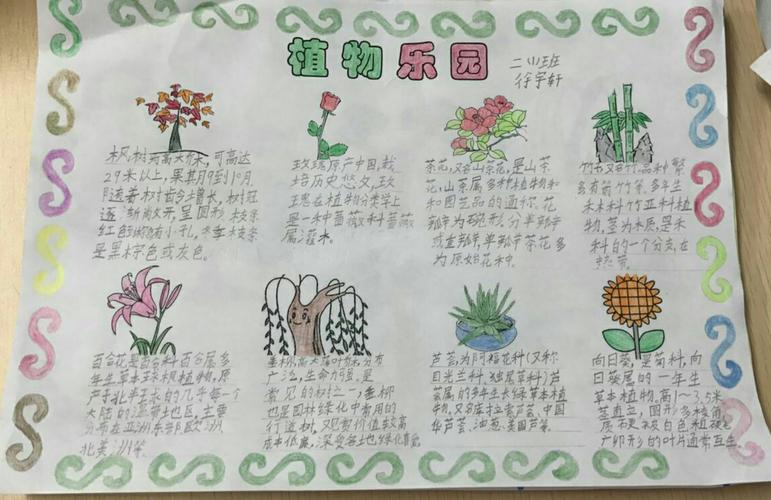 植物乐园
二小班
徐宇轩
枫树为高大乔木，可高达
29米以上，果其月9到10月
随着树龄增长，树冠
逐渐敞开，呈圆形 枝条
红色 有小孔，冬季枝条
是黑棕色或灰色。
玫瑰原产中国，栽
培历史悠久，玫
瑰在植物分类学上
是一种蔷薇科蔷薇
属灌木。
茶花，又名山茶花，是山茶
花，山茶属多种植物和
和园艺品的通称，花
瓣为碗形，分单瓣
或重瓣，单瓣茶花多
为原始花种。
竹 又名竹 品种 繁
多有箭竹等，多年生
禾本科竹亚科植
物，茎为木质，是禾
科的一个分支，在
热带
百合花是百合科百合属多
年生草本球根植物，原
产于北半球的几乎每一个
大陆的温带地区，主要
分布在亚洲东部欧洲
北美洲等。
垂柳，高大落叶 分布
广泛，生命力强 是
常见的树之一，垂柳
也是园林绿化中常用的
行道树，观赏价值较高
成本低廉，深受各地绿化喜爱
芦荟，为阿福花科（又称
日光兰科、独尾草科）芦
荟属的多年生长绿草本植
物，又名库拉索芦荟、中国
华芦荟、油葱、美国芦荟。
向日葵，是菊科，向
日葵属的一年生
草本植物，高1～3.5米
茎直立，圆形多棱角
质 被白色粗硬毛
广卵形的叶片通常互生